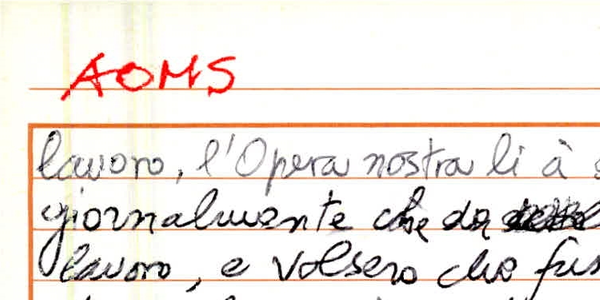 AOMS
lavoro, l'Opera nostra li à
giornalmente che da
lavoro, e volsero che fus